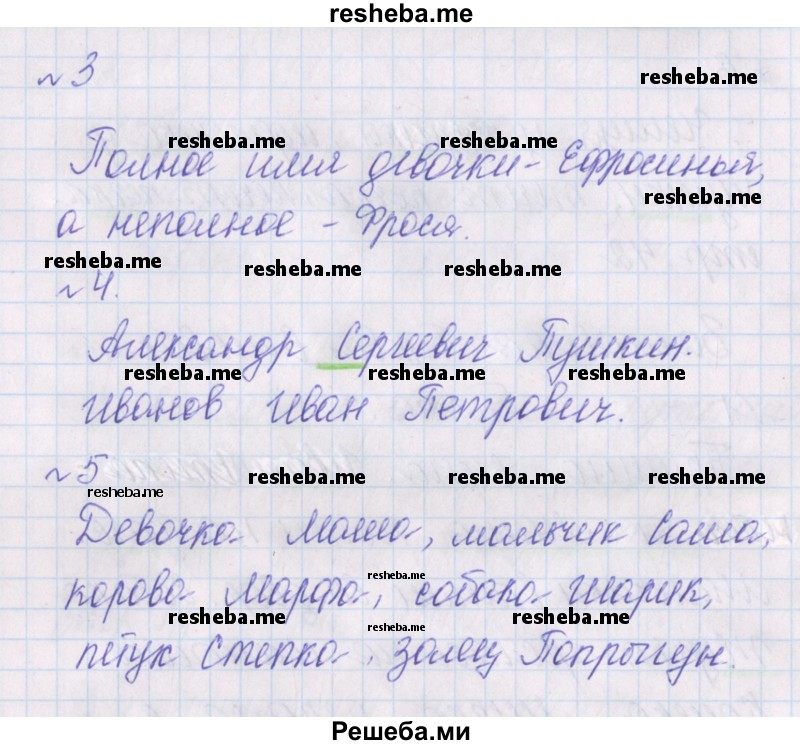 resheba.me
№ 3
resheba.me
resheba.me resheba.me
Полное имя девочки - Ефросинья,
resheba.me
а неполное - Фрося.
resheba.me resheba.me resheba.me
№ 4.
Александр Сергеевич Пушкин.
resheba.me resheba.me resheba.me
Иванов Иван Петрович.
№ 5
resheba.me resheba.me resheba.me
resheba.me
Девочка Маша, мальчик Саша,
resheba.me
корова Марфа, собака Шарик,
resheba.me resheba.me
resheba.me
петух Степка, заяц Попрыгун.
Решеба.ми